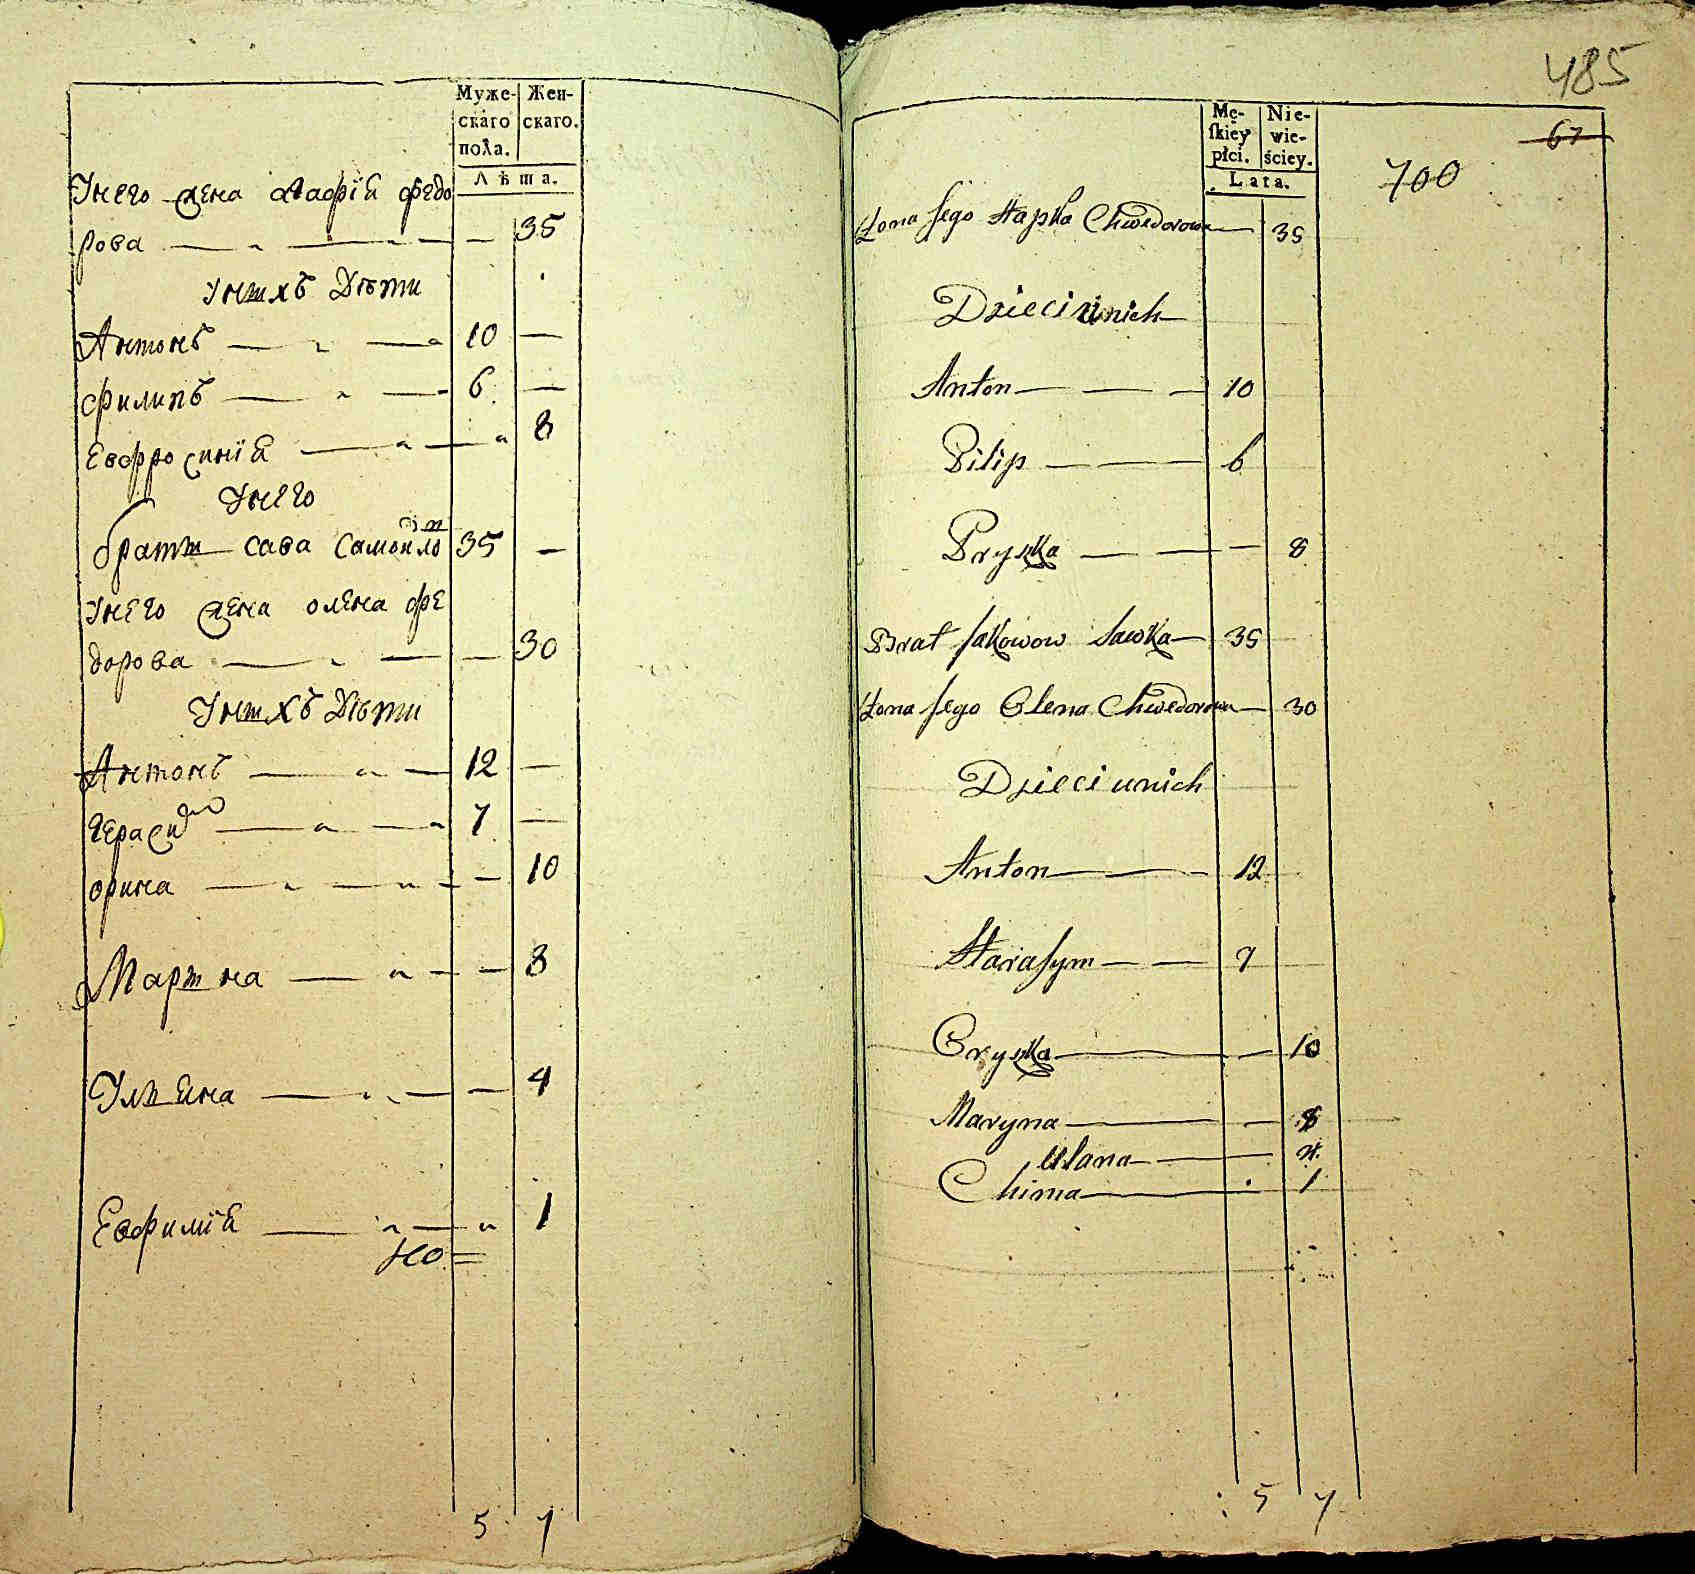 Муже-
скаго
пола.
Жен-
скаго.
Лѣта.
У него жена Агафїя Федо
рова 35
У нихъ Дѣти
Антонъ 10
Филипъ 6
Евфросинїя 8
У него
братъ Сава Самойло 35
У него жена Олена Фе
дорова 30
У нихъ Дѣти
Антонъ 12
Герасим 7
Орина 10
Марина 8
Ульяна 4
Евфимїя 1
5 7
485
Mę-
skiey
płci.
Nie-
wie-
ściey.
Lata.
67
700
Żona Jego Hapka Chwedorowa 35
Dzieci u nich
Anton 10
Pilip 6
Pryska 8
Brat Jakowow Sawka 35
Żona Jego Olena Chwedorowa 30
Dzieci u nich
Anton 12
Harasym 7
Oryszka 10
Maryna 8
Ulana 4
Chima 1
5 7